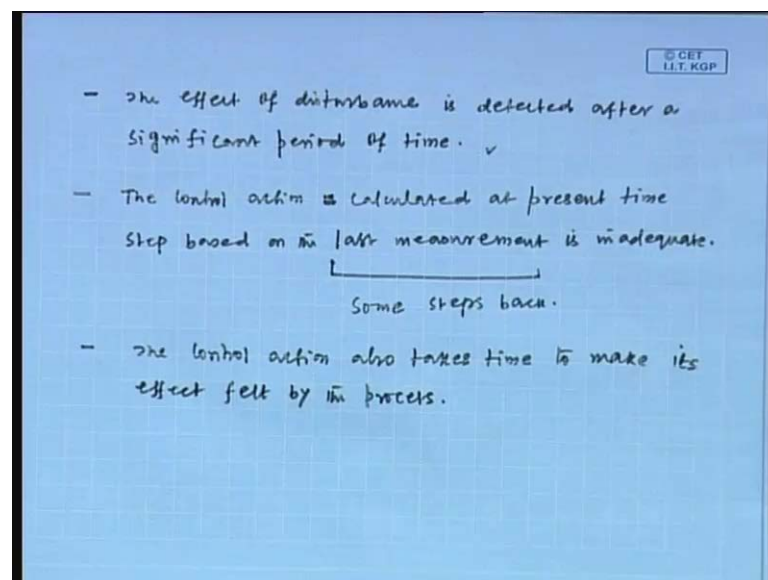 © CET
I.I.T. KGP
- The effect of disturbance is detected after a
significant period of time. ✓
- The control action calculated at present time
step based on the last measurement is inadequate.
Some steps back.
- The control action also takes time to make its
effect felt by the process.